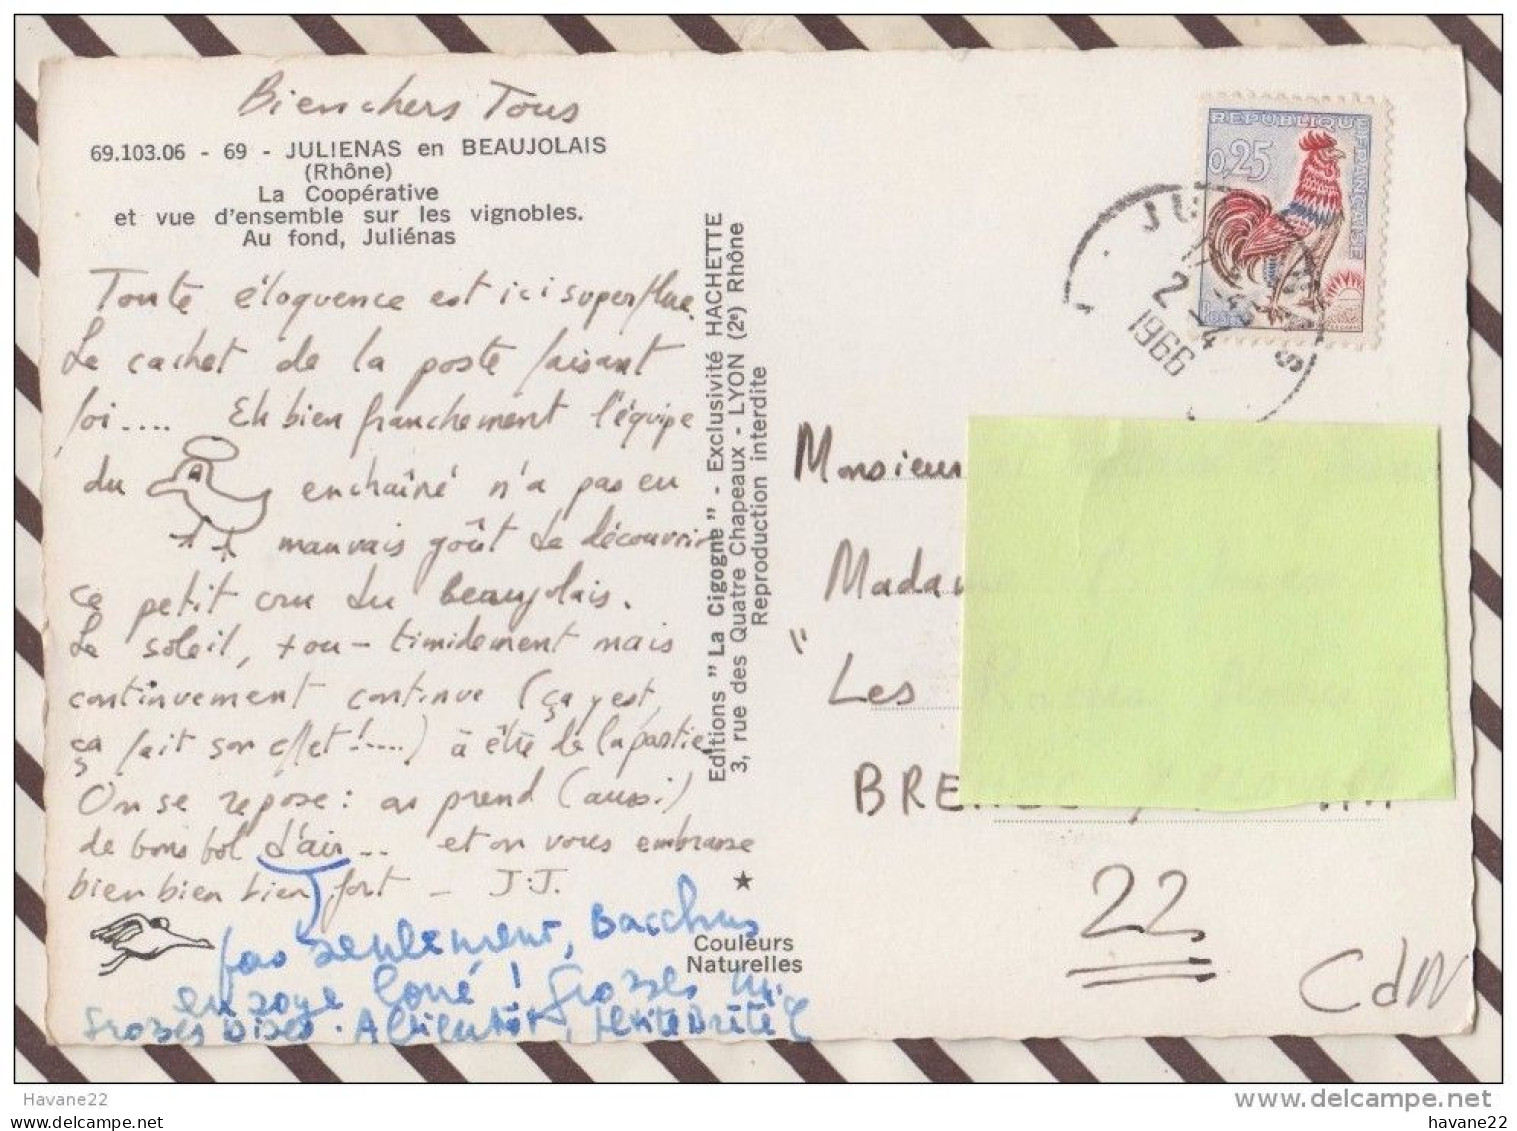 Bien chers Tous
69.103.06 - 69 - JULIENAS en BEAUJOLAIS
(Rhône)
La Coopérative
et vue d'ensemble sur les vignobles.
Au fond, Juliénas
Toute éloquence est ici superflue.
Le cachet de la poste faisant
foi.... Eh bien franchement l'équipe
du enchaîné n'a pas eu
mauvais goût de découvrir
ce petit cru du beaujolais.
Le soleil, + ou - timidement mais
continuement continue (ça y est,
ça fait son effet !.....) à être de la partie
On se repose : on prend (aussi)
de bons bol d'air... et on vous embrasse
bien bien bien fort - J.J.
pas seulement, Bacchus
en soye loué ! Grosses
Grosses bises. A bientôt,
Editions " La Cigogne " - Exclusivité HACHETTE
3, rue des Quatre Chapeaux - LYON (2e) Rhône
Reproduction interdite
Couleurs
Naturelles
REPUBLIQUE FRANÇAISE
0,25
JU S
17
2
1966
Monsieur
Madame
" Les
BRE
22
CdN
Havane22
www.delcampe.net
havane22.com
havane22